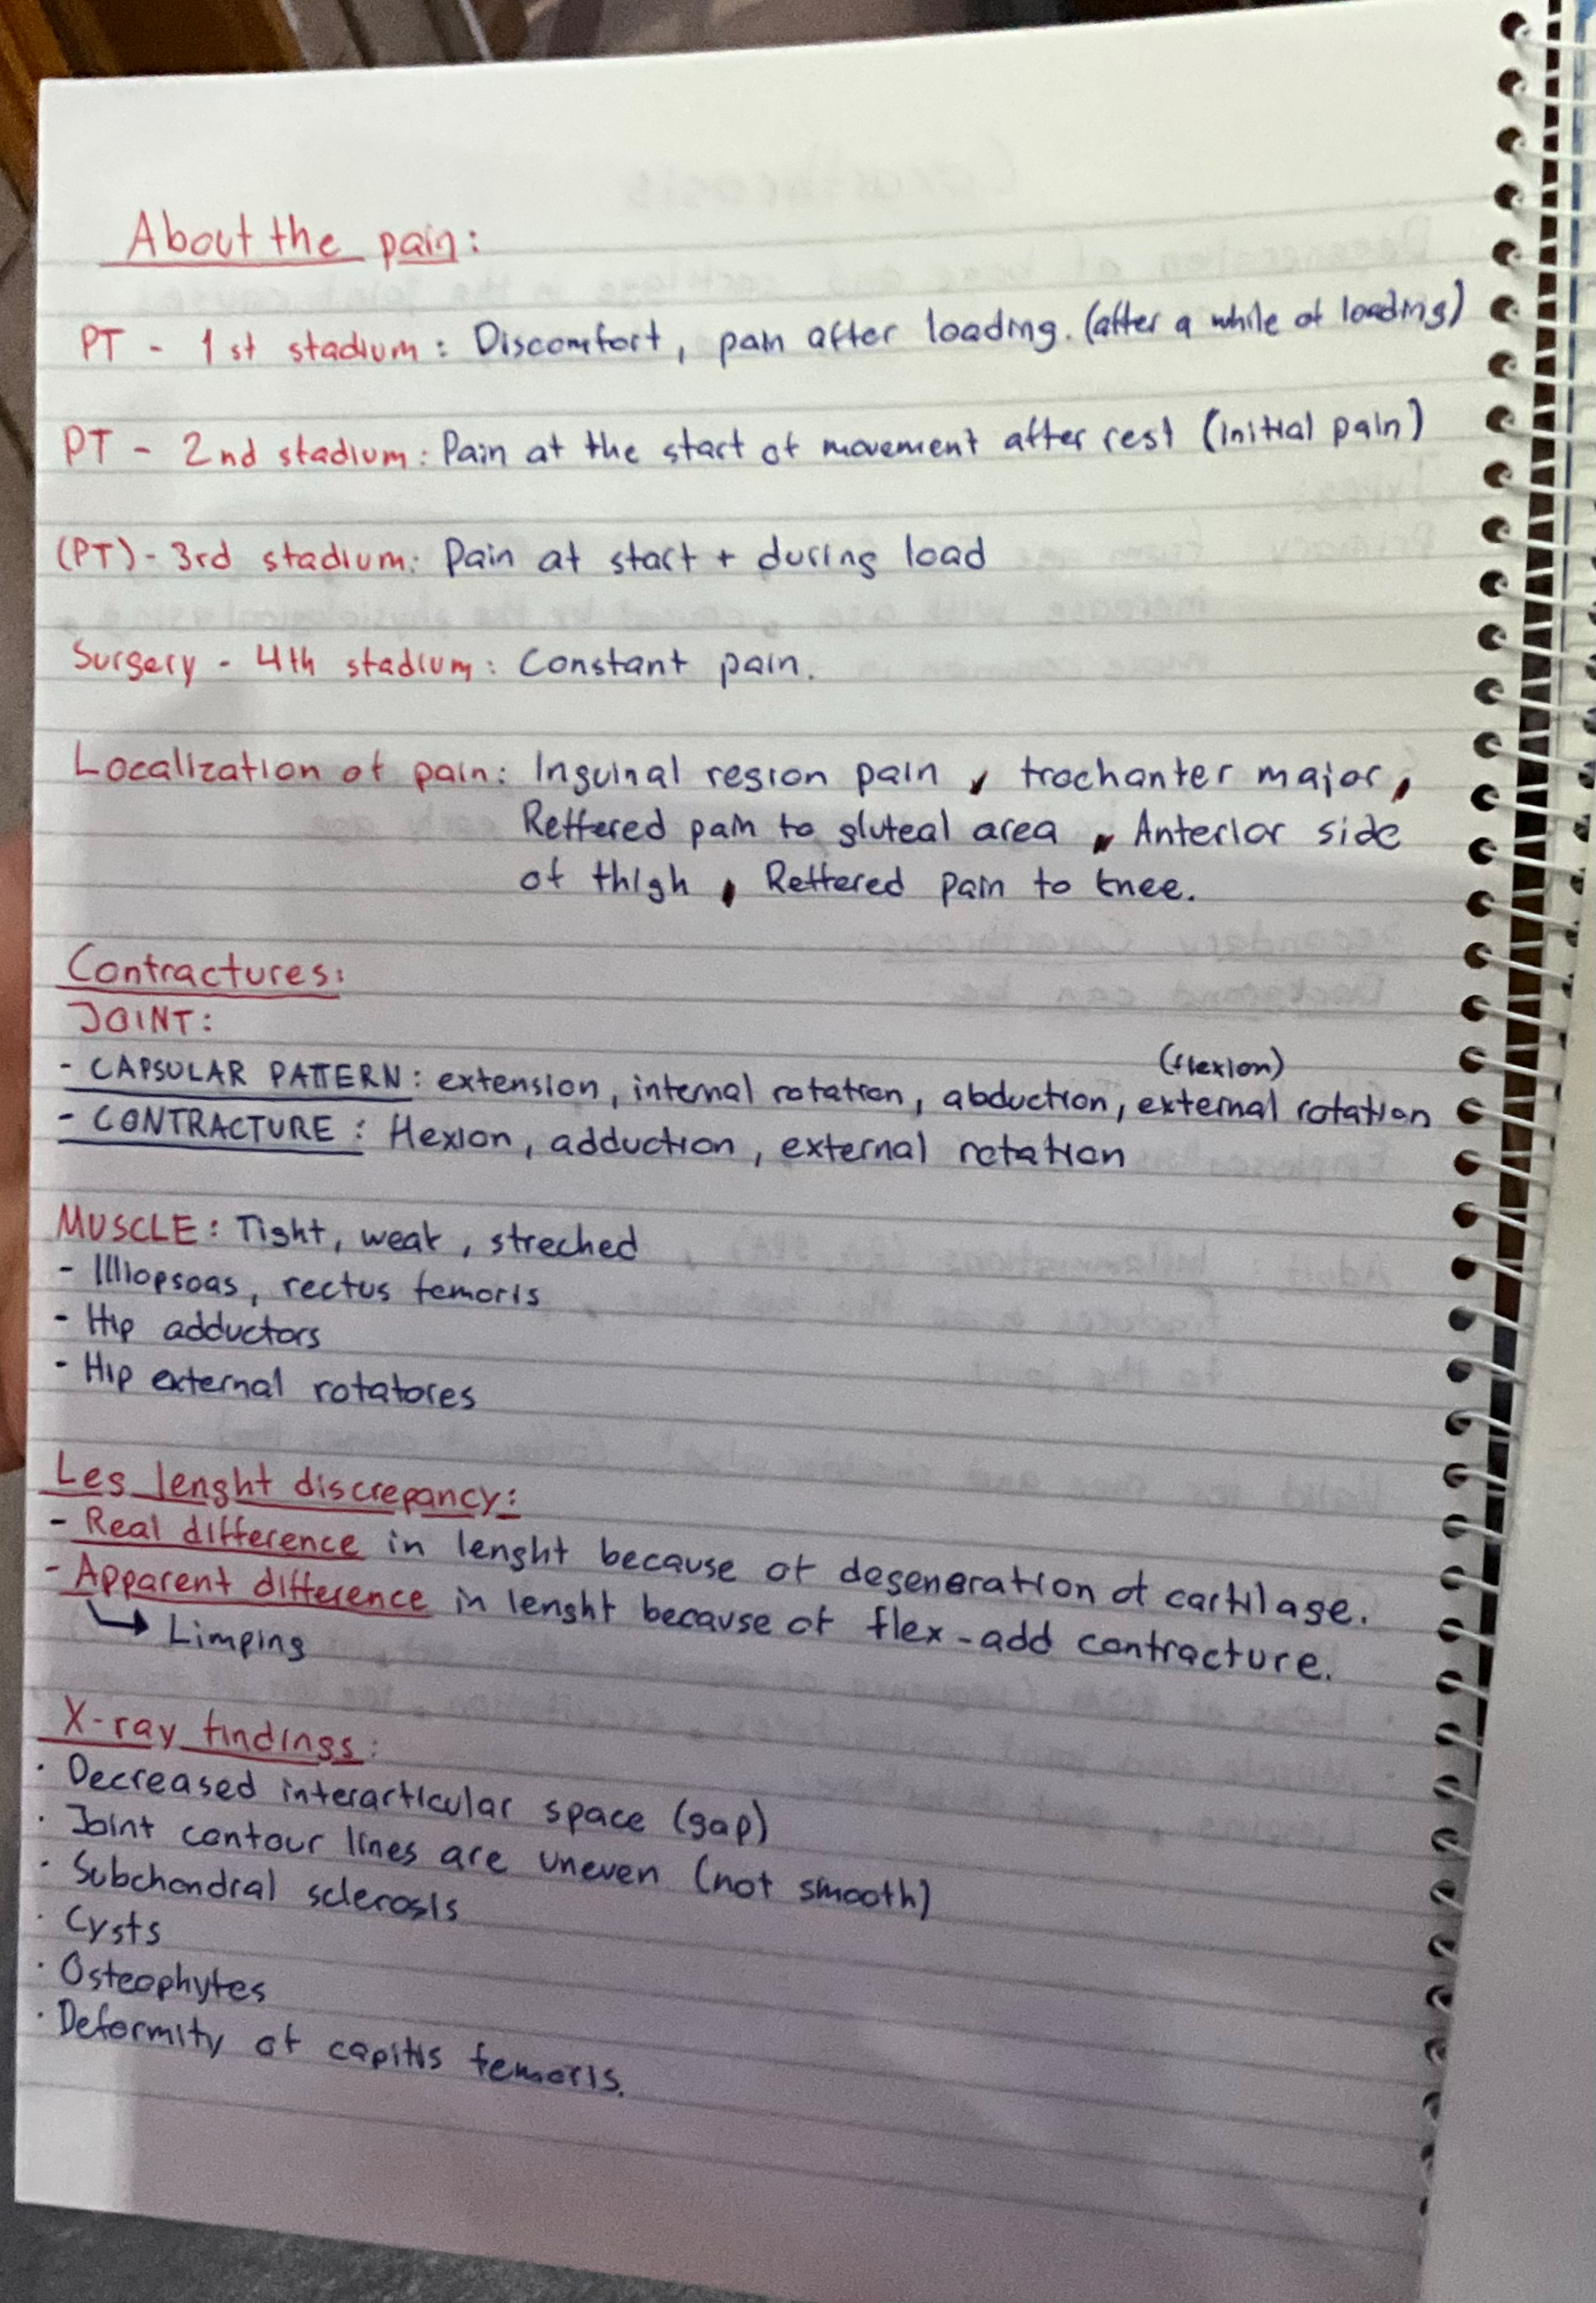 About the pain:
PT - 1st stadium: Discomfort, pain after loading. (after a while of loading)
PT - 2nd stadium: Pain at the start of movement after rest (initial pain)
(PT) - 3rd stadium: Pain at start + during load
Surgery - 4th stadium: Constant pain.
Localization of pain: Inguinal region pain, trochanter major,
Reffered pain to gluteal area, Anterior side
of thigh, Reffered pain to knee.
Contractures:
JOINT:
(flexion)
- CAPSULAR PATTERN: extension, internal rotation, abduction, external rotation
- CONTRACTURE: flexion, adduction, external rotation
MUSCLE: Tight, weak, streched
- Illiopsoas, rectus femoris
- Hip adductors
- Hip external rotatores
Leg lenght discrepancy:
- Real difference in lenght because of degeneration of cartilage.
- Apparent difference in lenght because of flex-add contracture.
↳ Limping
X-ray findings:
· Decreased interarticular space (gap)
· Joint contour lines are uneven (not smooth)
· Subchondral sclerosis
· Cysts
· Osteophytes
· Deformity of capitis femoris.